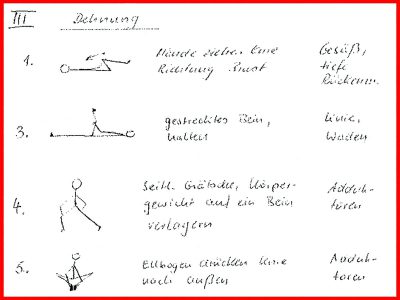 III Dehnung
1. Hände ziehen Knie Gesäß,
Richtung Brust tiefe
Rückenm.
3. gestrecktes Bein, Knie,
halten Waden
4. Seitl. Grätsche, Körper- Adduk-
gewicht auf ein Bein toren
verlagern
5. Ellbogen drücken Knie Adduk-
nach außen toren